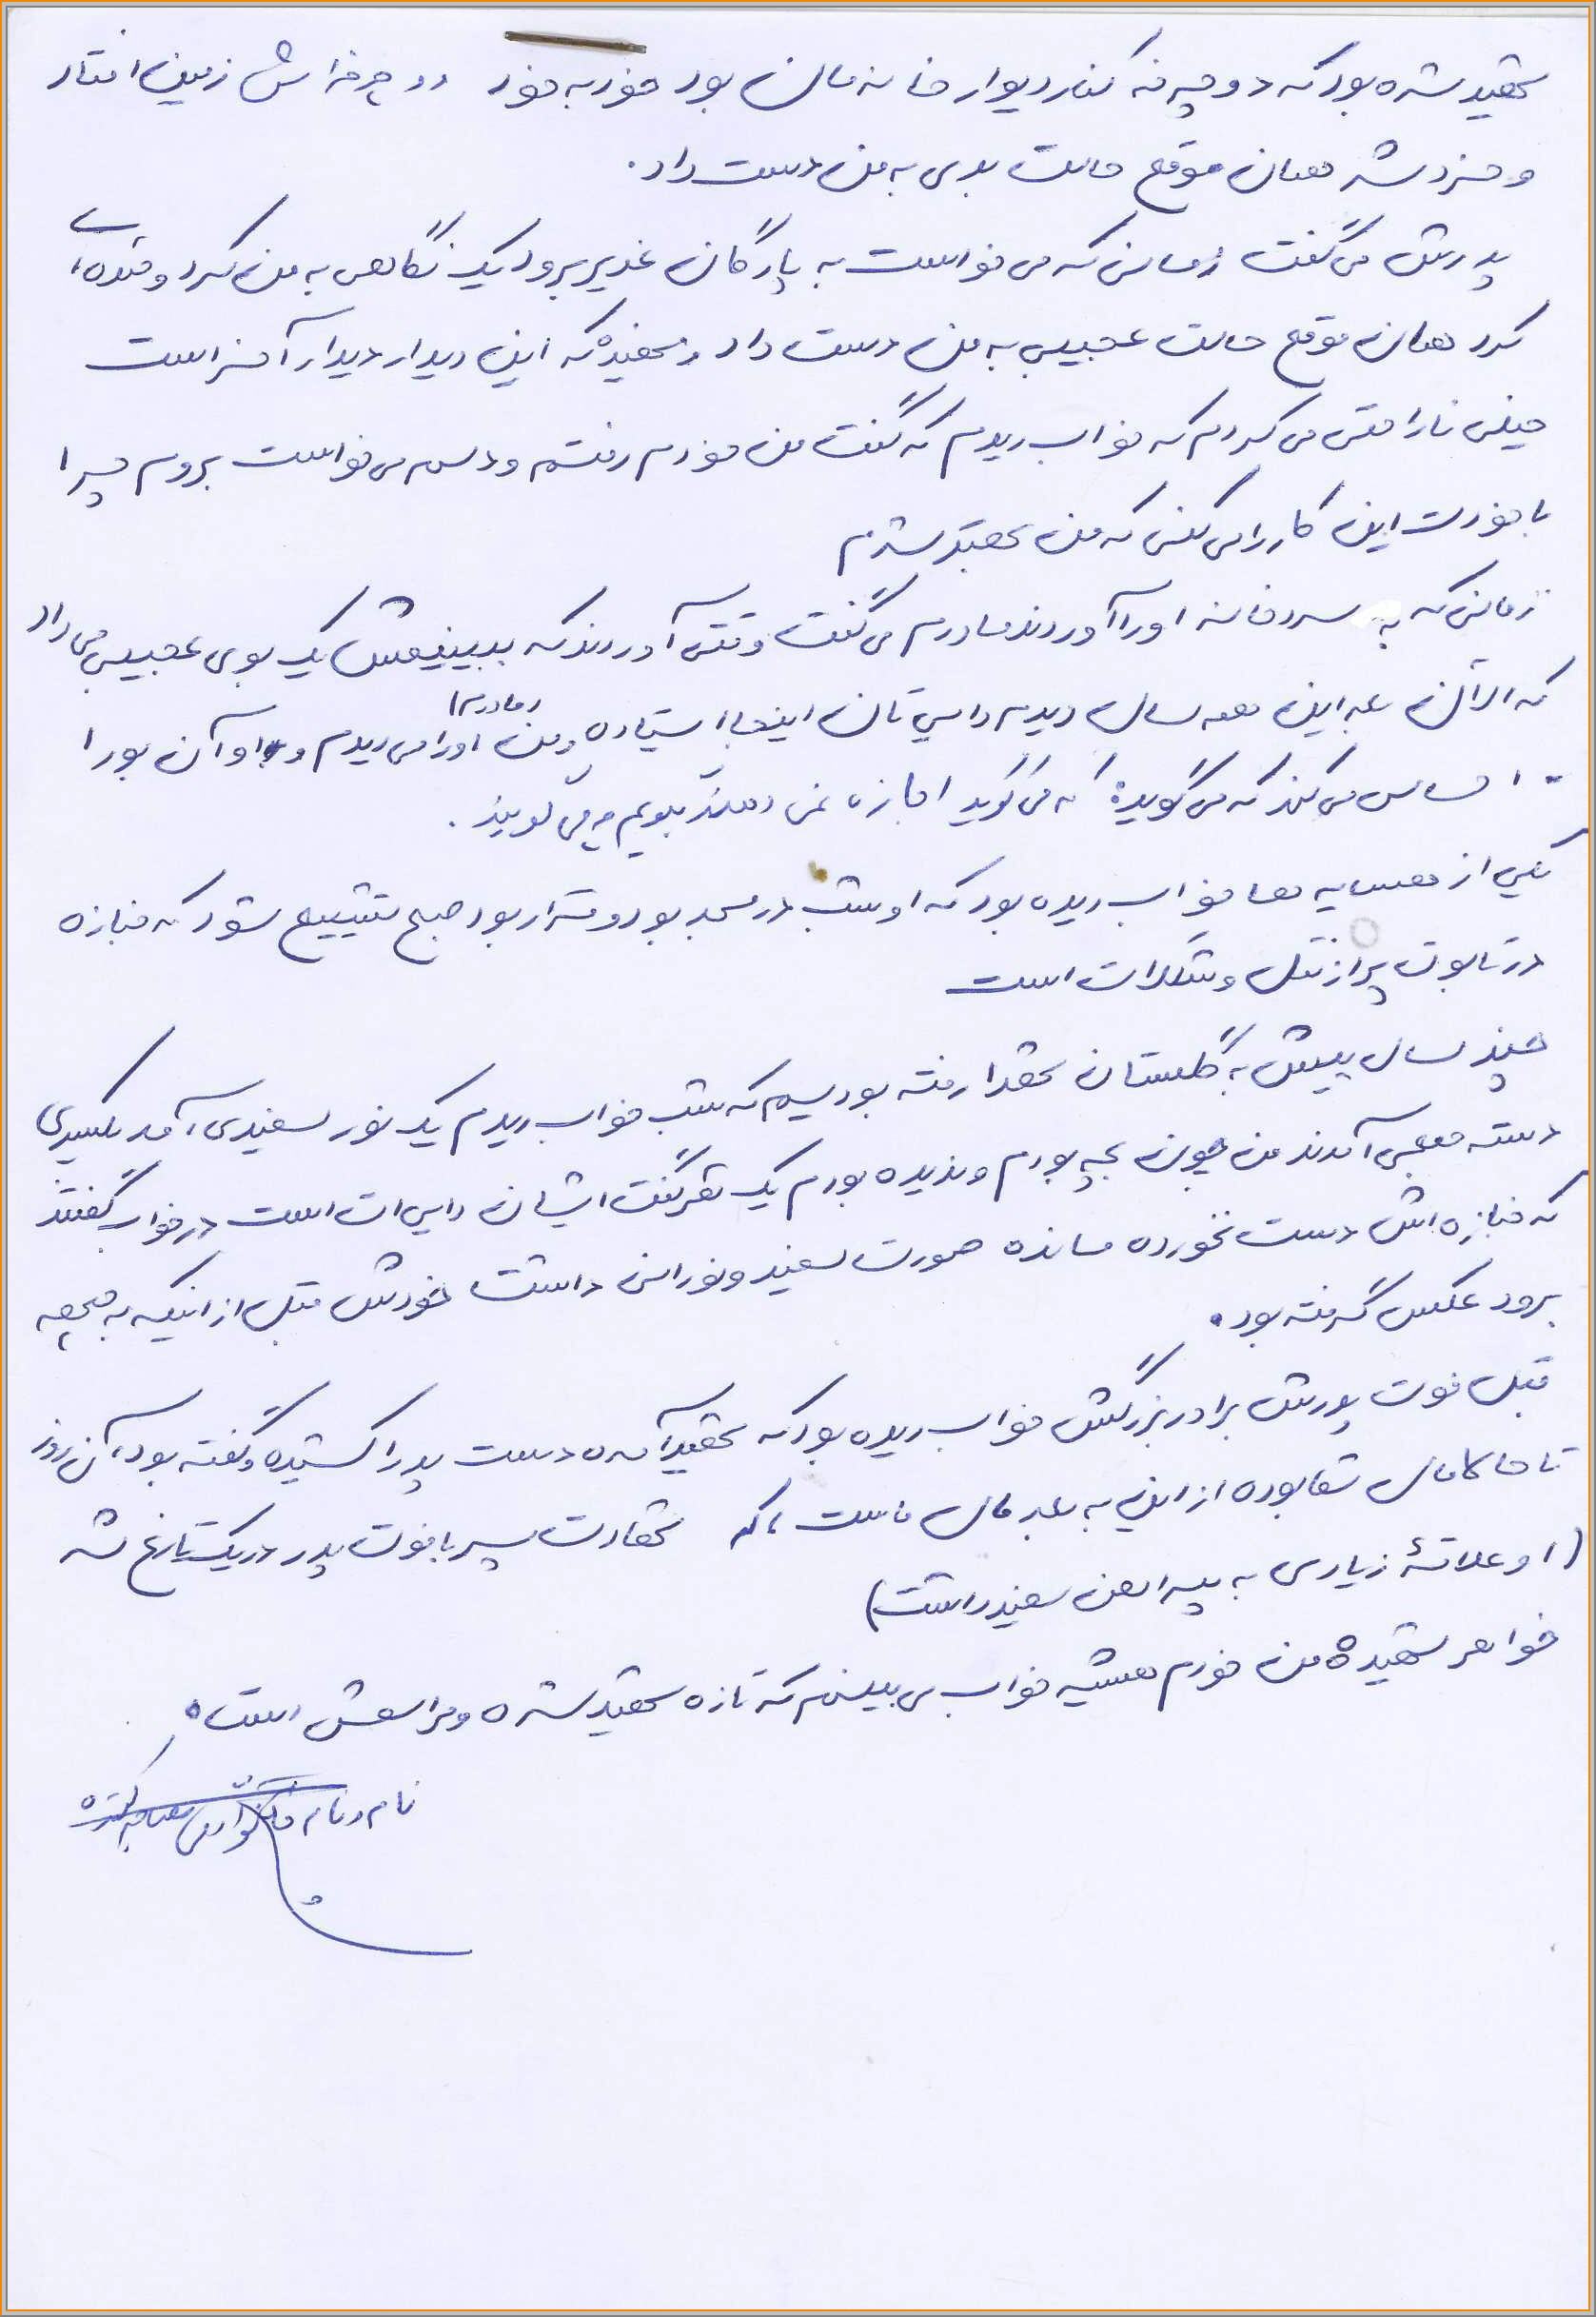 شهید شده بود که دوچرخه کنار دیوار خانه مان بود خود به خود دوچرخه اش زمین افتاد
و خرد شد همان موقع حالت بدی به من دست داد.
پدرش می گفت زمانی که می خواست به پادگان غدیر برود یک نگاهی به من کرد و خنده ای
کرد همان موقع حالت عجیبی به من دست داد و فهمیدم که این دیدار دیدار آخر است
خیلی ناراحتی می کردم که خواب دیدم که گفت من خودم رفتم و دلم می خواست بروم چرا
با خودت این کار را می کنی که من شهید شدم
زمانی که به سردخانه او را آوردند مادرم می گفت وقتی آوردند که ببینیمش یک بوی عجیبی می داد
که الآن بعد این همه سال دیدم دایی تان اینجا ایستاده و من (مادرم) او را می دیدم و او آن بو را
احساس می کند که می گوید که می گوید اجازه نمی دهند بگویم چه می گویند.
یکی از همسایه ها خواب دیده بود که او شب در مسجد بود و قرار بود صبح تشییع شود که جنازه
در تابوت پر از نقل و شکلات است
چند سال پیش به گلستان شهدا رفته بودیم که شب خواب دیدم یک نور سفیدی آمد یکسری
دسته جمعی آمدند من چون بچه بودم و ندیده بودم یک نفر گفت ایشان دایی ات است در خواب گفتند
که جنازه اش دست نخورده مانده صورت سفید و نورانی داشت خودش قبل از اینکه به جبهه
برود عکس گرفته بود.
قبل فوت پدرش برادر بزرگش خواب دیده بود که شهید آمده دست پدر را کشیده و گفته بود، آن روز
تا حالا مال شما بوده از این به بعد مال ماست، که شهادت پسر با فوت پدر در یک تاریخ شد
(او علاقهٔ زیادی به پیراهن سفید داشت)
خواهر شهید: من خودم همیشه خواب می بینم که تازه شهید شده و مراسمش است.
نام و نام خانوادگی